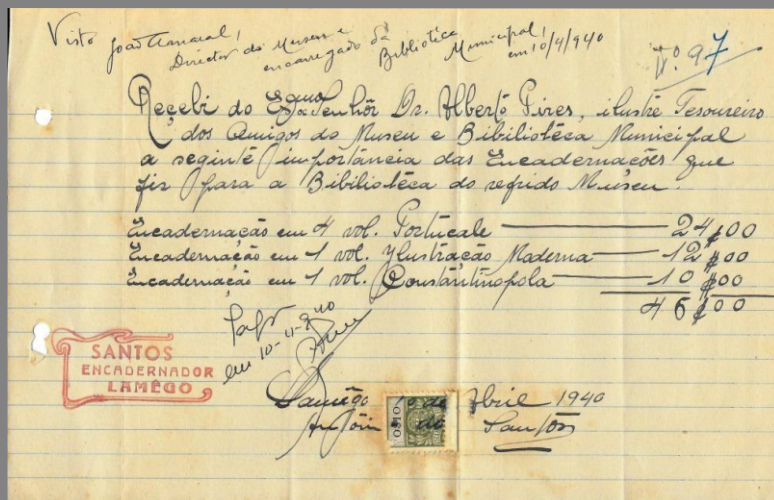 Visto João Amaral,
Director do Museu e
encarregado da
Bibliotéca Municipal,
em 10/4/940
Nº. 97
Reçebi do Exmo Senhôr Dr. Alberto Pires, ilustre Tesoureiro
dos Amigos do Museu e Bibiliotéca Municipal
a seginte importância das Encadernações que
fiz para a Bibiliotéca do refrido Museu.
Encadernação em 4 vol. Portucale 24$00
Encadernação em 1 vol. Ylustração Moderna 12$00
Encadernação em 1 vol. Constantinopola 10$00
46$00
Pago
em 10-4-940
Pires
SANTOS
ENCADERNADOR
LAMÊGO
Lamêgo 10 de Abril 1940
António dos Santos
0$10